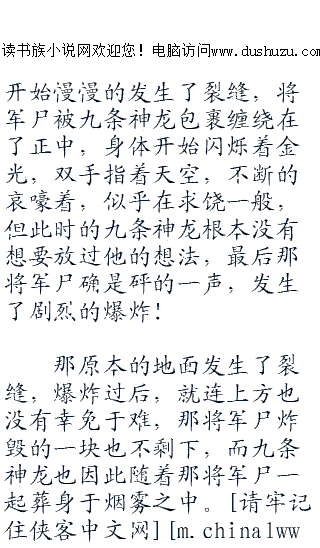 读书族小说网欢迎您！电脑访问www.dushuzu.com
开始慢慢的发生了裂缝，将
军尸被九条神龙包裹缠绕在
了正中，身体开始闪烁着金
光，双手指着天空，不断的
哀嚎着，似乎在求饶一般，
但此时的九条神龙根本没有
想要放过他的想法，最后那
将军尸确是砰的一声，发生
了剧烈的爆炸！
那原本的地面发生了裂
缝，爆炸过后，就连上方也
没有幸免于难，那将军尸炸
毁的一块也不剩下，而九条
神龙也因此随着那将军尸一
起葬身于烟雾之中。[请牢记
住侠客中文网][m.china1ww